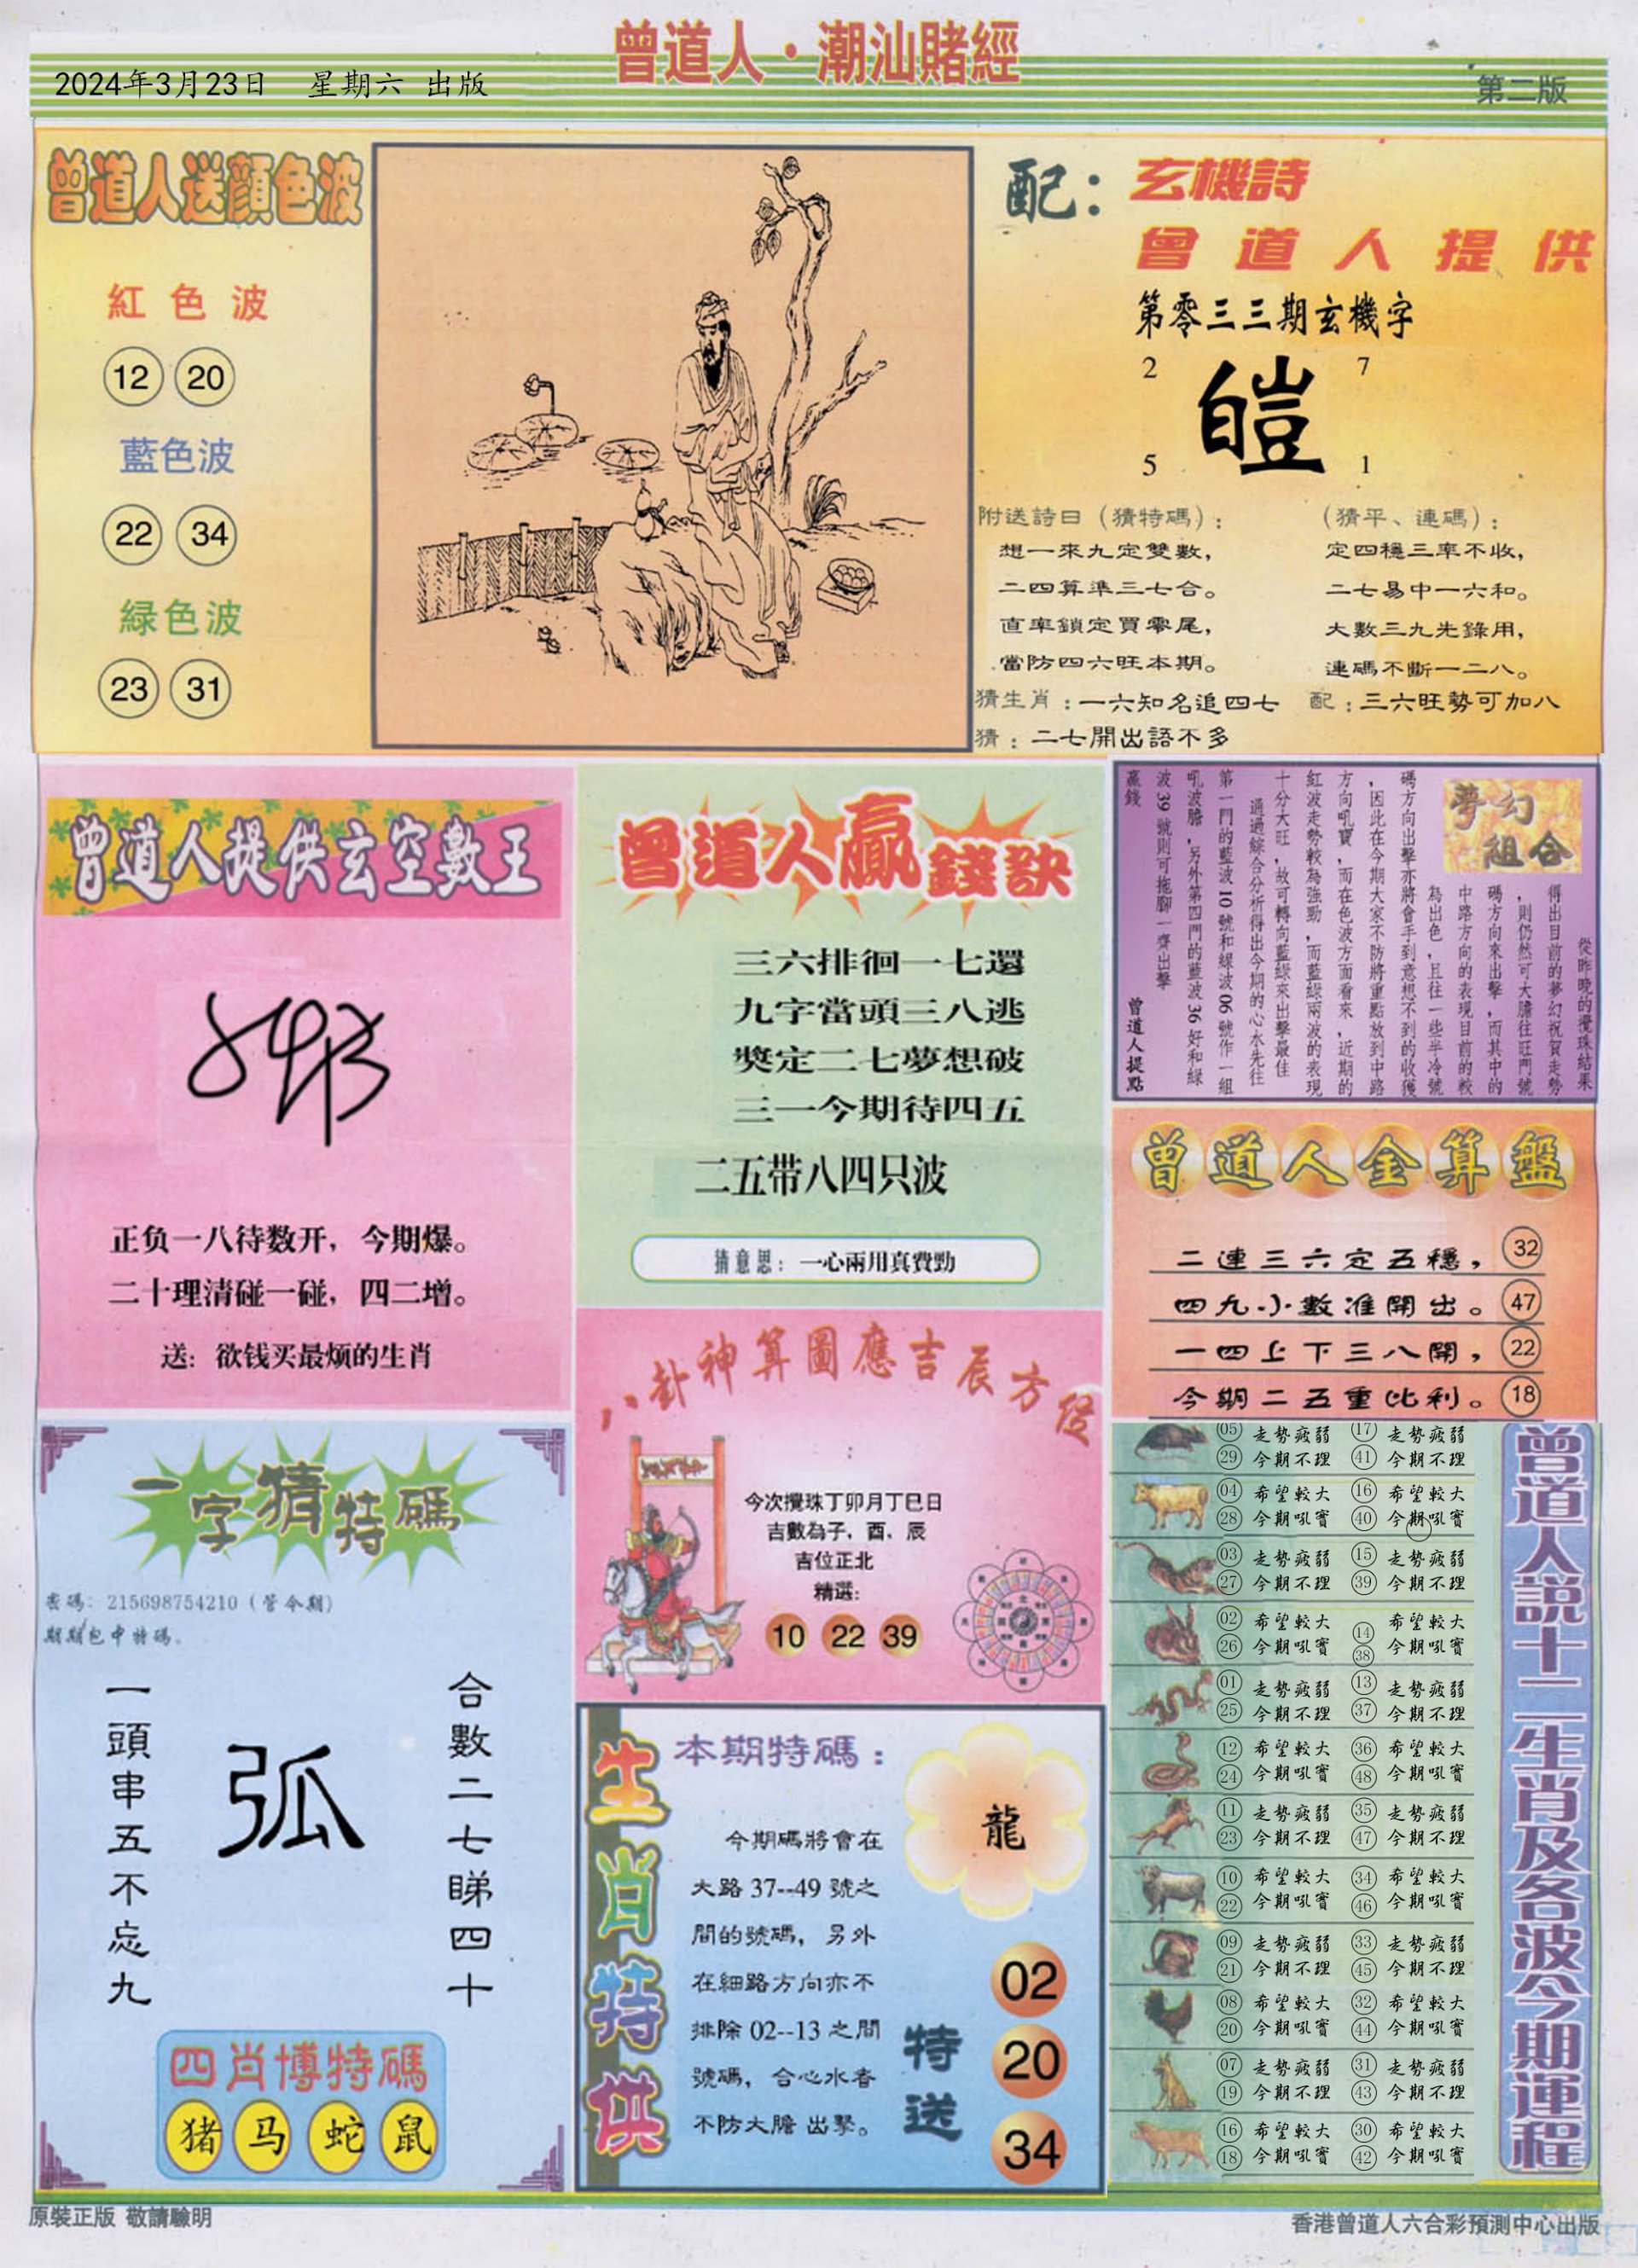 曾道人·潮汕賭經
2024年3月23日 星期六 出版
第二版
曾道人送顔色波
紅色波
12 20
藍色波
22 34
緑色波
23 31
配：玄機詩
曾道人提供
第零三三期玄機字
2 7
皚
5 1
附送詩曰（猜特碼）：
想一來九定雙數，
二四算準三七合。
直率鎖定買零尾，
當防四六旺本期。
（猜平、連碼）：
定四穩三率不收，
二七易中一六和。
大數三九先錄用，
連碼不斷一二八。
猜生肖：一六知名追四七 配：三六旺勢可加八
猜：二七開出語不多
曾道人提供玄空數王
正负一八待数开，今期爆。
二十理清碰一碰，四二增。
送：欲钱买最烦的生肖
曾道人贏錢訣
三六排徊一七還
九字當頭三八逃
獎定二七夢想破
三一今期待四五
二五带八四只波
猜意思：一心兩用真費勁
夢幻
組合
從昨晚的攪珠結果
得出目前的夢幻祝賀走勢
，則仍然可大膽往旺門號
碼方向來出擊，而其中的
中路方向的表現目前的較
為出色，且往一些半冷號
碼方向出擊亦將會手到意想不到的收獲
，因此在今期大家不防將重點放到中路
方向吼寶，而在色波方面看來，近期的
紅波走勢較為強勁，而藍綠兩波的表現
十分大旺，故可轉向藍綠來出擊最佳
通過綜合分析得出今期的心水先往
第一門的藍波10號和綠波06號作一組
吼波膽，另外第四門的藍波36好和綠
波39號則可拖腳一齊出擊
贏錢
曾道人提點
曾道人金算盤
二連三六定五穩，32
四九小數准開出。47
一四上下三八開，22
今期二五重比利。18
八卦神算圖應吉辰方位
今次攪珠丁卯月丁巳日
吉數為子．酉．辰
吉位正北
精選：
10 22 39
一字猜特碼
密碼：215698754210（管令期）
期期包中特碼．
合數二七睇四十
弧
一頭串五不忘九
四肖博特碼
猪 马 蛇 鼠
生肖特供
本期特碼：
龍
今期碼將會在
大路37--49號之
間的號碼，另外
在細路方向亦不
排除02--13之間
號碼，合心水者
不防大膽出擊。
特送
02
20
34
曾道人說十二生肖及各波今期運程
05 走勢疲弱 17 走勢疲弱
29 今期不理 41 今期不理
04 希望較大 16 希望較大
28 今期吼寶 40 今期吼寶
03 走勢疲弱 15 走勢疲弱
27 今期不理 39 今期不理
02 希望較大 14 希望較大
26 今期吼寶 38 今期吼寶
01 走勢疲弱 13 走勢疲弱
25 今期不理 37 今期不理
12 希望較大 36 希望較大
24 今期吼寶 48 今期吼寶
11 走勢疲弱 35 走勢疲弱
23 今期不理 47 今期不理
10 希望較大 34 希望較大
22 今期吼寶 46 今期吼寶
09 走勢疲弱 33 走勢疲弱
21 今期不理 45 今期不理
08 希望較大 32 希望較大
20 今期吼寶 44 今期吼寶
07 走勢疲弱 31 走勢疲弱
19 今期不理 43 今期不理
16 希望較大 30 希望較大
18 今期吼寶 42 今期吼寶
原裝正版 敬請驗明
香港曾道人六合彩預測中心出版